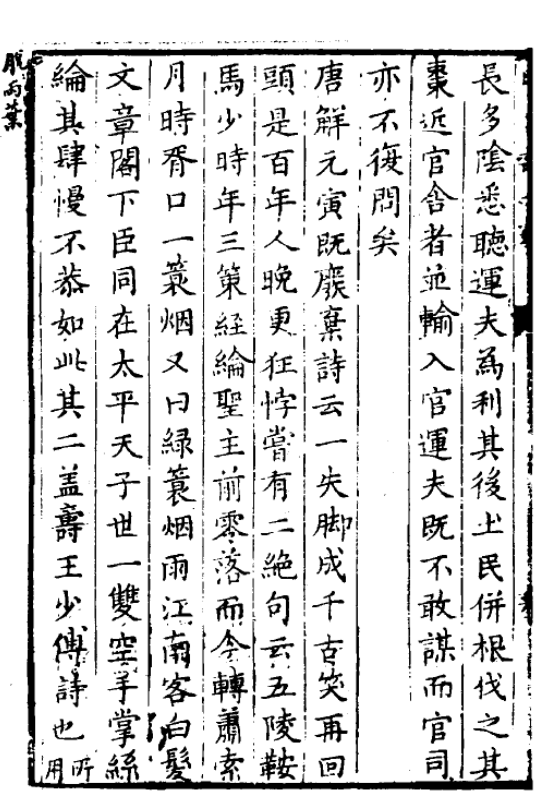 長多陰悉聽運夫爲利其後土民併根伐之其
棗近官舍者並輸入官運夫既不敢謀而官司
亦不復問矣
唐解元寅既廢棄詩云一失脚成千古笑再回
頭是百年人晚更狂悖嘗有二絶句云五陵鞍
馬少時年三策經綸聖主前零落而今轉蕭索
月時胥口一蓑烟又曰綠蓑烟雨江南客白髮
文章閣下臣同在太平天子世一雙空手掌絲
綸其肆慢不恭如此其二盖壽王少傅詩也所用
脫兩葉